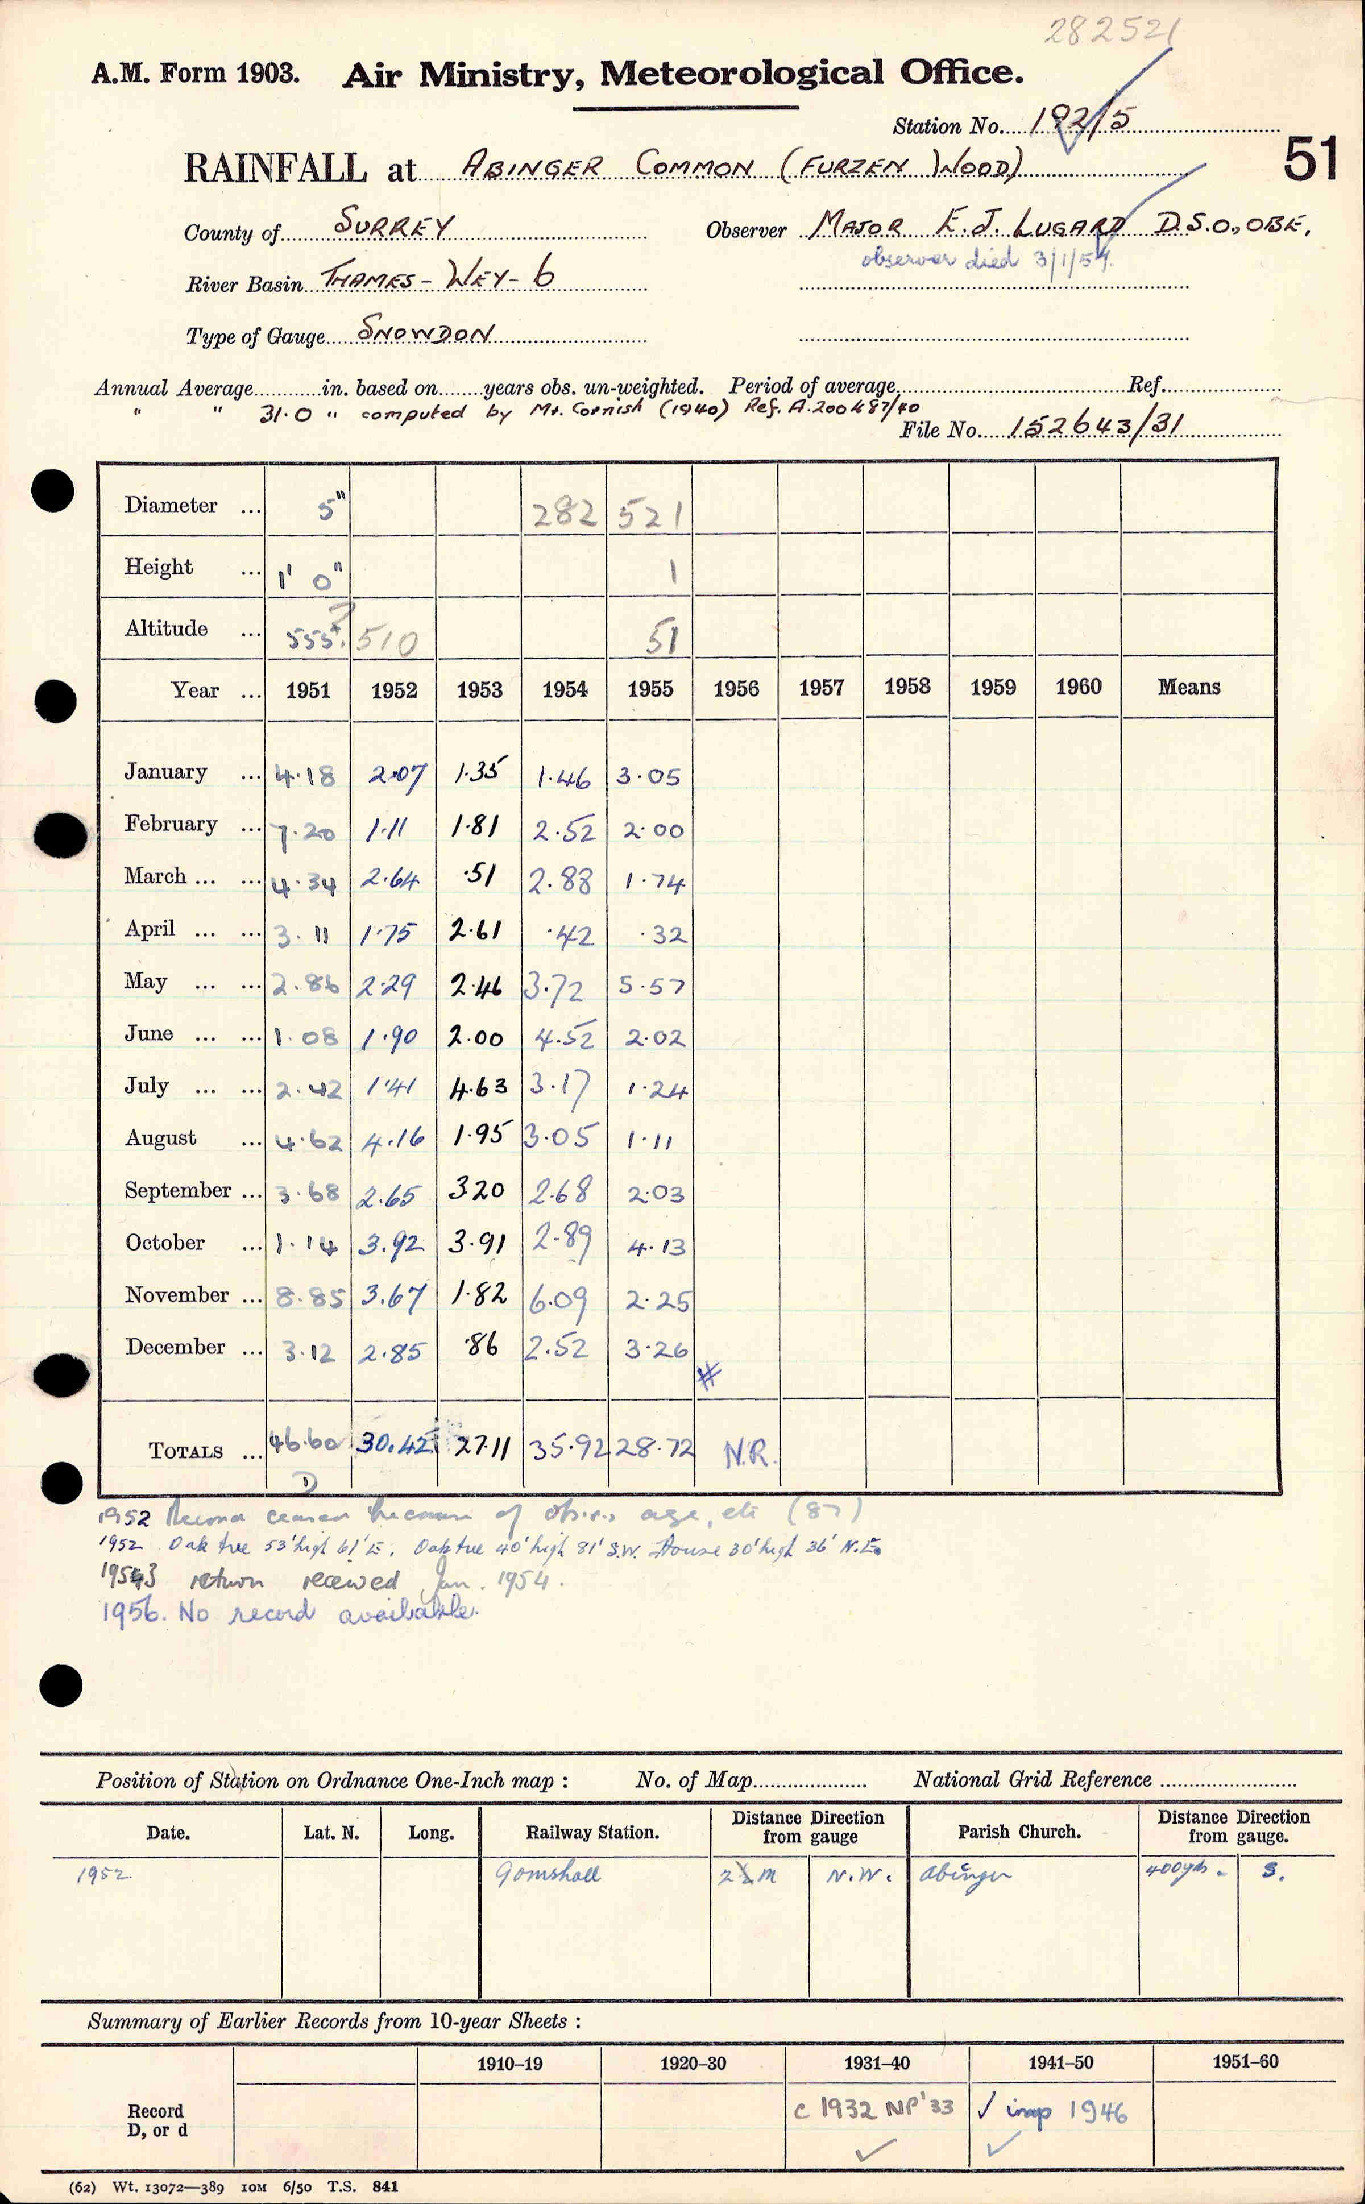 282521
A.M. Form 1903. Air Ministry, Meteorological Office.
Station No. 192/5
51
RAINFALL at ABINGER COMMON (FURZEN WOOD)
County of SURREY Observer MAJOR E.J. LUGARD D.S.O., OBE,
observer died 3/1/57.
River Basin THAMES - WEY - 6
Type of Gauge SNOWDON
Annual Average in. based on years obs. un-weighted. Period of average Ref.
" " 31.0 " computed by Mr. Cornish (1940) Ref. A.200487/40
File No. 152643/31
Diameter ... 5" 282 521
Height ... 1' 0" 1
Altitude ... 555'. ? 510 51
Year ... 1951 1952 1953 1954 1955 1956 1957 1958 1959 1960 Means
January ... 4.18 2.07 1.35 1.46 3.05
February ... 7.20 1.11 1.81 2.52 2.00
March ... ... 4.34 2.64 .51 2.88 1.74
April ... ... 3.11 1.75 2.61 .42 .32
May ... ... 2.86 2.29 2.46 3.72 5.57
June ... ... 1.08 1.90 2.00 4.52 2.02
July ... ... 2.42 1.41 4.63 3.17 1.24
August ... 4.62 4.16 1.95 3.05 1.11
September ... 3.68 2.65 320 2.68 2.03
October ... 1.14 3.92 3.91 2.89 4.13
November ... 8.85 3.67 1.82 6.09 2.25
December ... 3.12 2.85 .86 2.52 3.26
#
TOTALS ... 46.60 30.42 27.11 35.92 28.72 N.R.
D
1952 Record ceased because of obsrs age, etc (87)
1952 Oak tree 53' high 61' E. Oak tree 40' high 81' S.W. House 30' high 36' N.E.
1953 return received Jan. 1954.
1956. No record available.
Position of Station on Ordnance One-Inch map : No. of Map National Grid Reference
Date. Lat. N. Long. Railway Station. Distance Direction from gauge Parish Church. Distance Direction from gauge.
1952 Gomshall 2½ m N.W. Abinger 400yds. S.
Summary of Earlier Records from 10-year Sheets :
1910–19 1920–30 1931–40 1941–50 1951–60
Record D, or d c 1932 NP '33 ✓ imp 1946
✓ ✓
(62) Wt. 13072—389 10M 6/50 T.S. 841